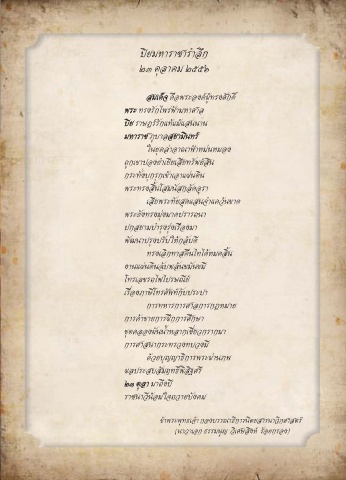 ปิยมหาราชารำลึก
๒๓ ตุลาคม ๒๕๕๖
สมเด็จ คือพระองค์ผู้ทรงศักดิ์
พระ ทรงรักไพร่ฟ้ามหาศาล
ปิย ราษฎร์รักแท้แม้แสนนาน
มหาราช ภูบาลสยามินทร์
ในยุคล่าอาณาฟ้าหม่นหมอง
ถูกเขาปองย่ำเยียเสียทรัพย์สิน
กระทั่งบุกรุกเข้าเอาแผ่นดิน
พระทรงสิ้นโสมนัสกลัดอุรา
เสียพระทัยสุดแสนจำแคว้นขาด
พระยังทรงมุ่งมาดปรารถนา
ปกสยามบำรุงรุ่งเรืองมา
พัฒนาปรุงปรับให้กลับดี
ทรงเลิกทาสคืนไทได้หมดสิ้น
งานแผ่นดินฉับพลันขมันขมี
โทรเลขรถไฟไปรษณีย์
เรื่องภาษีโทรศัพท์กับประปา
การทหารการศาลการกฎหมาย
การค้าขายการฝึกการศึกษา
ขุดคลองผันน้ำหลากเชี่ยวกรากมา
การศาสนากระทรวงทบวงมี
ด้วยบุญญาธิการพระผ่านภพ
ผลประสบสัมฤทธิ์พิสิฐศรี
๒๓ ตุลา มาถึงปี
ราชนาวีน้อมใจถวายบังคม
ข้าพระพุทธเจ้า กองบรรณาธิการนิตยสารนาวิกศาสตร์
(นาวาเอก ธรรมนูญ วิเศษสิงห์ ร้อยกรอง)